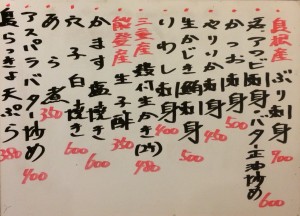 島根産 ぶり刺身 700
活アワビ刺身・バター正油炒め 600
かつお刺身 500
やりいか刺身 450
生かじき鮪刺身 500
いわし刺身 400
三重産 殻付生かき(2ケ) 480
能登産 生子酢 350
かます塩焼き 600
穴子白焼き 600
あら煮 350
アスパラバター炒め 400
島らっきょ天ぷら 380